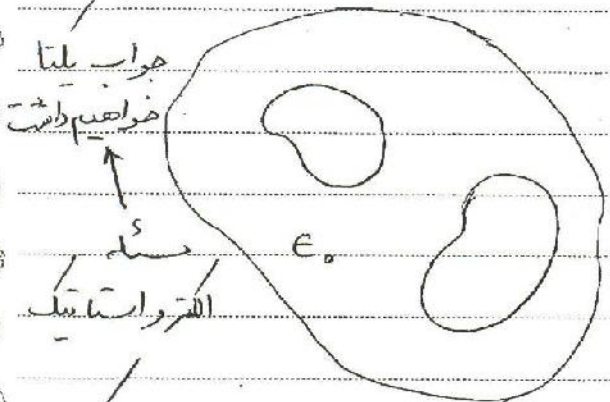 جواب یکتا
خواهیم داشت
مسئله
الکترواستاتیک
ϵ₀